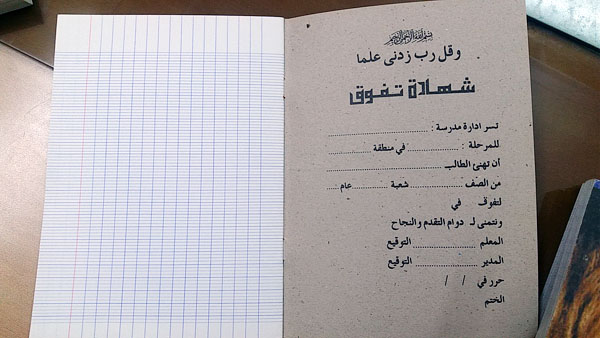 بسم الله الرحمن الرحيم
وقل رب زدنى علما
شهادة تفوق
تسر ادارة مدرسة : ..............................
للمرحلة : .................... في منطقة ....................
أن تهنئ الطالب ..............................
من الصف .................... شعبة .................... عام ..........
لتفوق في
ونتمنى لـ دوام التقدم والنجاح
المعلم .................... التوقيع
المدير .................... التوقيع
حرر في / /
الختم